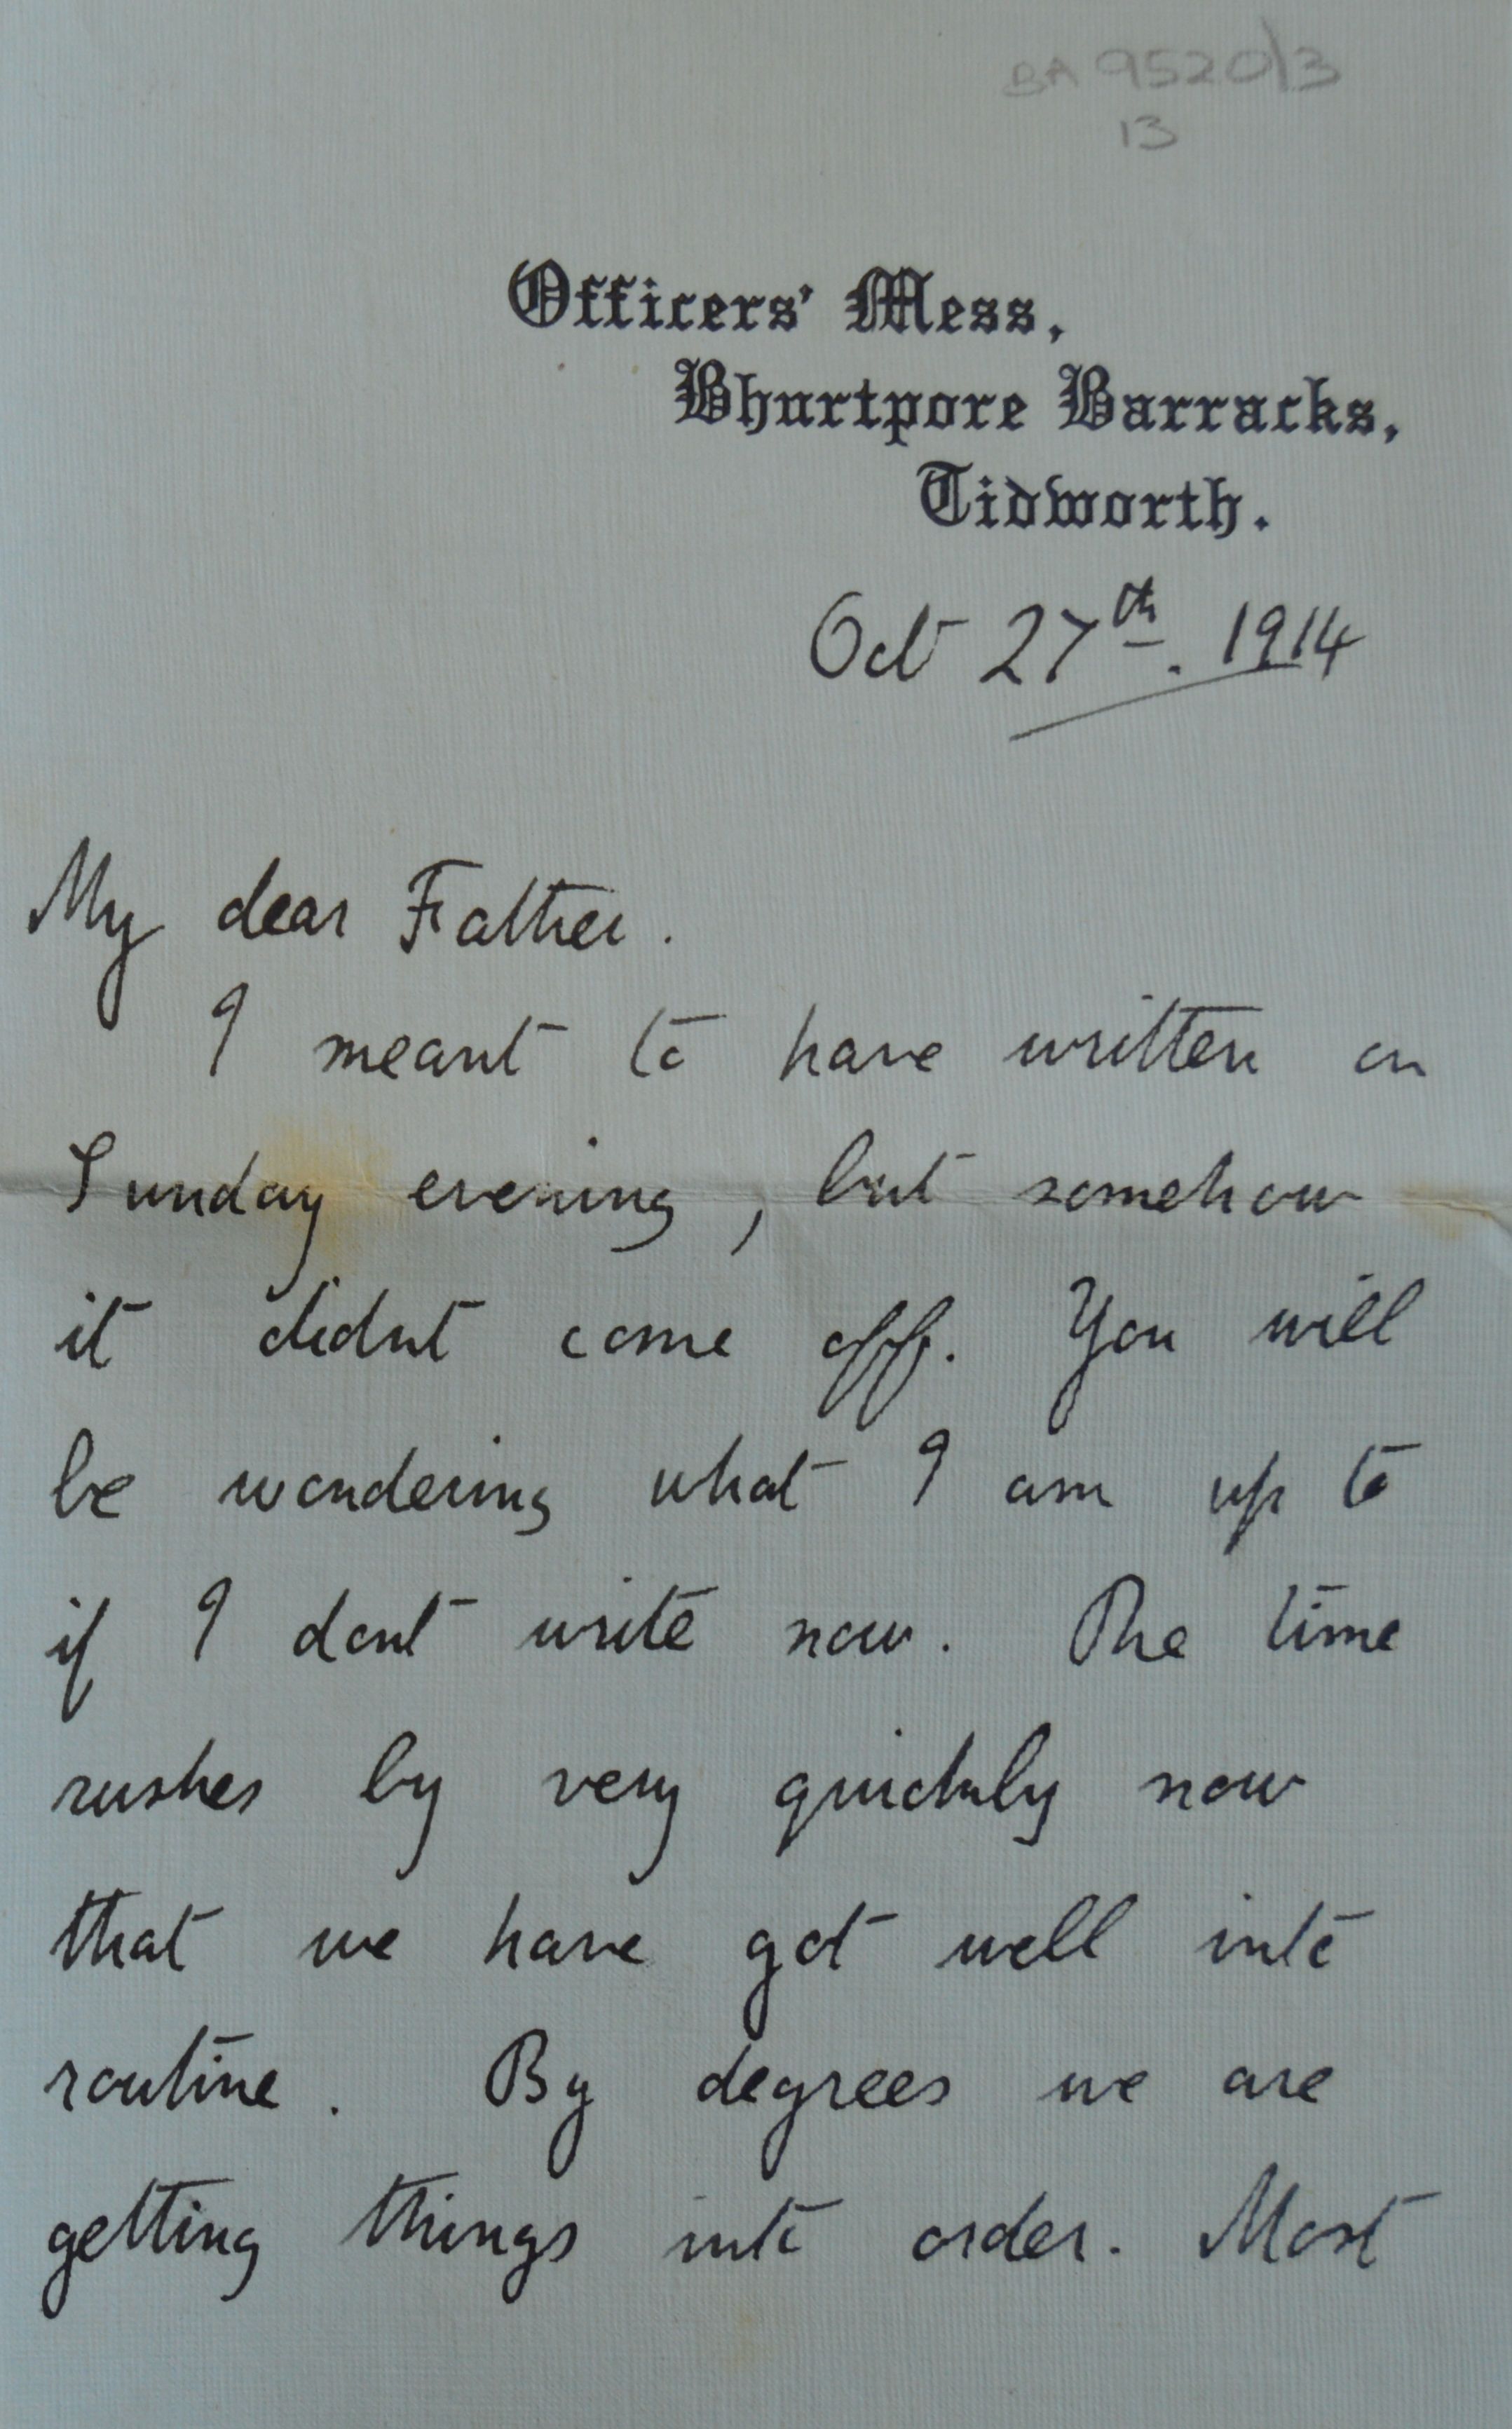 BA 9520/3
13
Officers' Mess,
Bhurtpore Barracks,
Tidworth.
Oct 27th. 1914
My dear Father.
I meant to have written on
Sunday evening, but somehow
it didnt come off. You will
be wondering what I am up to
if I dont write now. The time
rushes by very quickly now
that we have got well into
routine. By degrees we are
getting things into order. Most